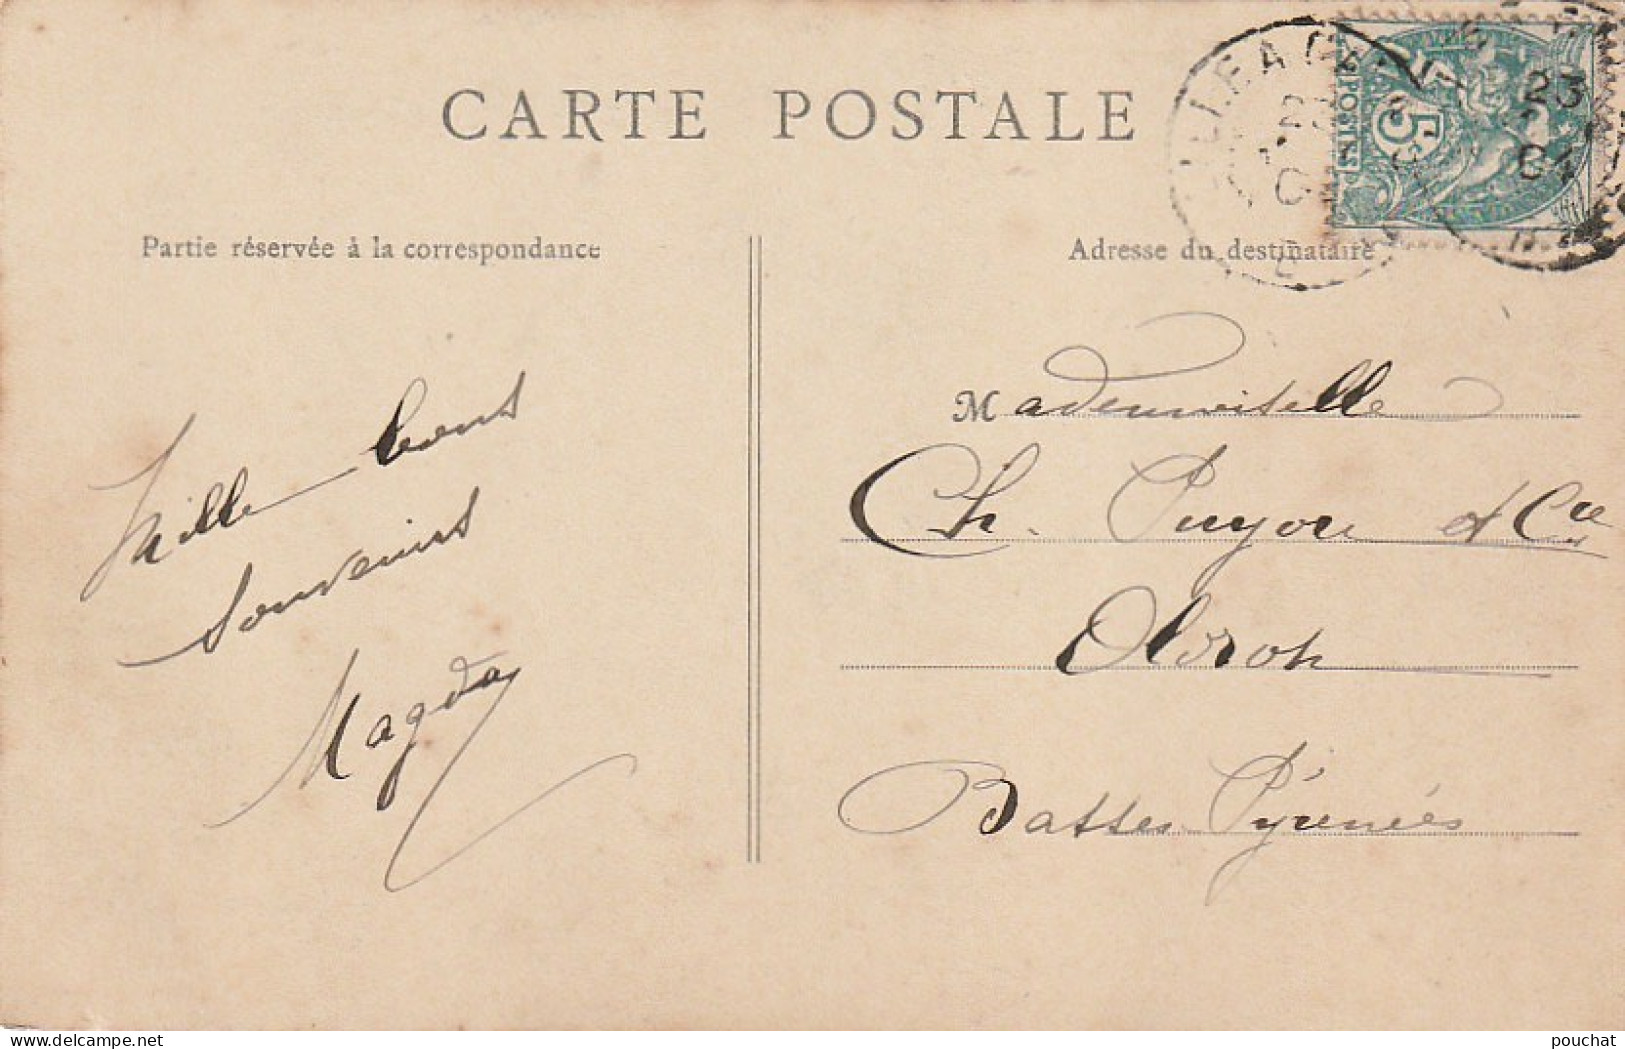 CARTE POSTALE
Partie réservée à la correspondance
Adresse du destinataire
POSTES
5
23
04
Mille bons
souvenirs
Magda
Mademoiselle
Ch. Puyou & Cie
Oloron
Basses Pyrénées
delcampe.net
pouchat